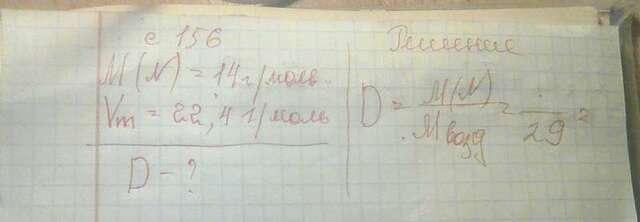 с 156
M(N) = 14 г/моль.
Vm = 22,4 л/моль
D - ?
Решение
D = M(N) / Mвозд = / 29 =